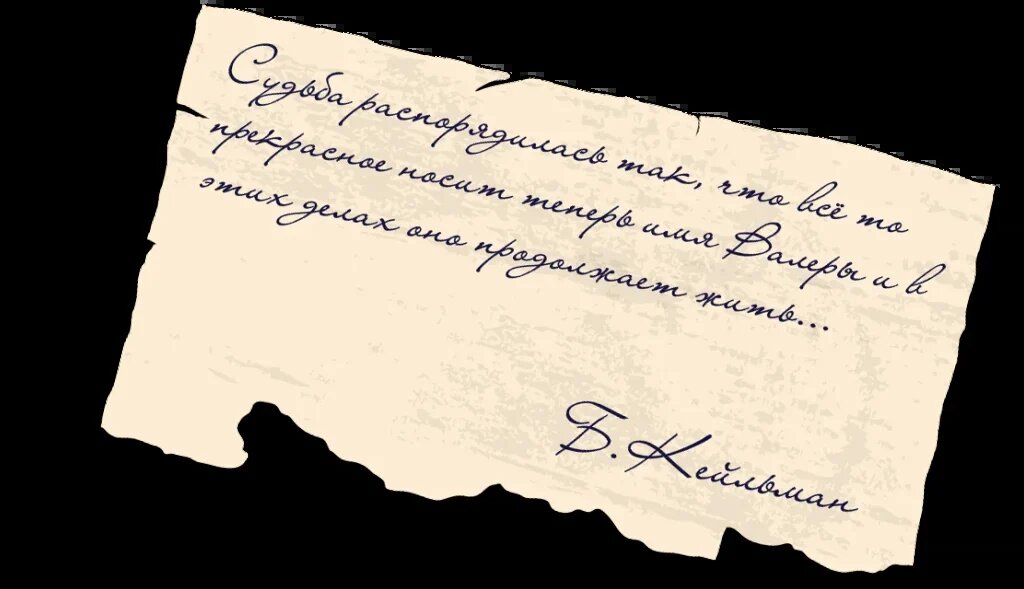 Судьба распорядилась так, что всё то
прекрасное носит теперь имя Валеры и в
этих делах оно продолжает жить...
Б. Кейльман